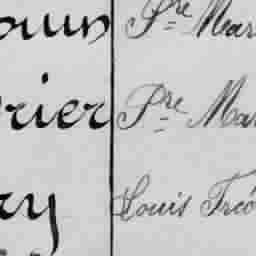 oun Pre Mar
rier Pre Mar
ry Louis Fréd